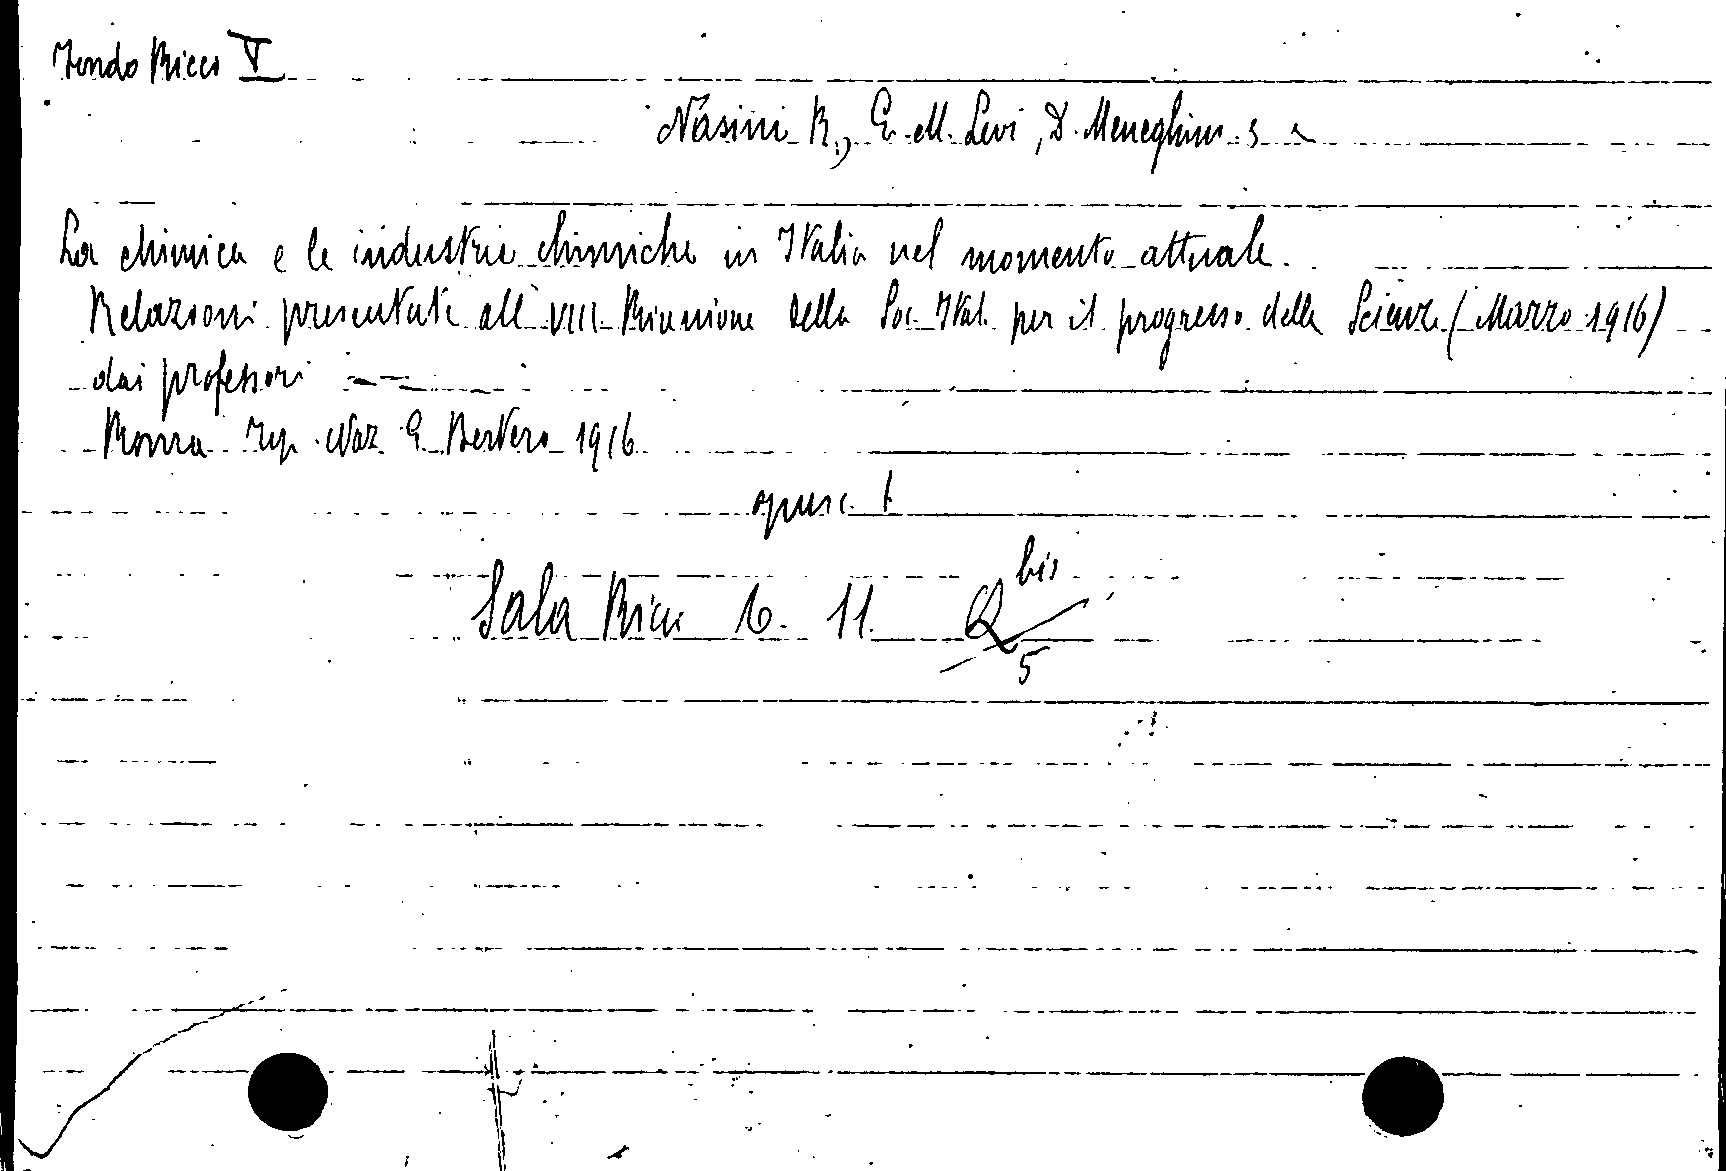 Fondo Ricci V
Nasini R., G. M. Levi, D. Meneghini
La chimica e le industrie chimiche in Italia nel momento attuale.
Relazioni presentate all' VIII Riunione della Soc. Ital. per il progresso delle Scienze (Marzo 1916)
dai professori
Roma Tip. Naz. G. Bertero 1916
opusc. 1
Sala Ricci 6. 11. Q bis
5